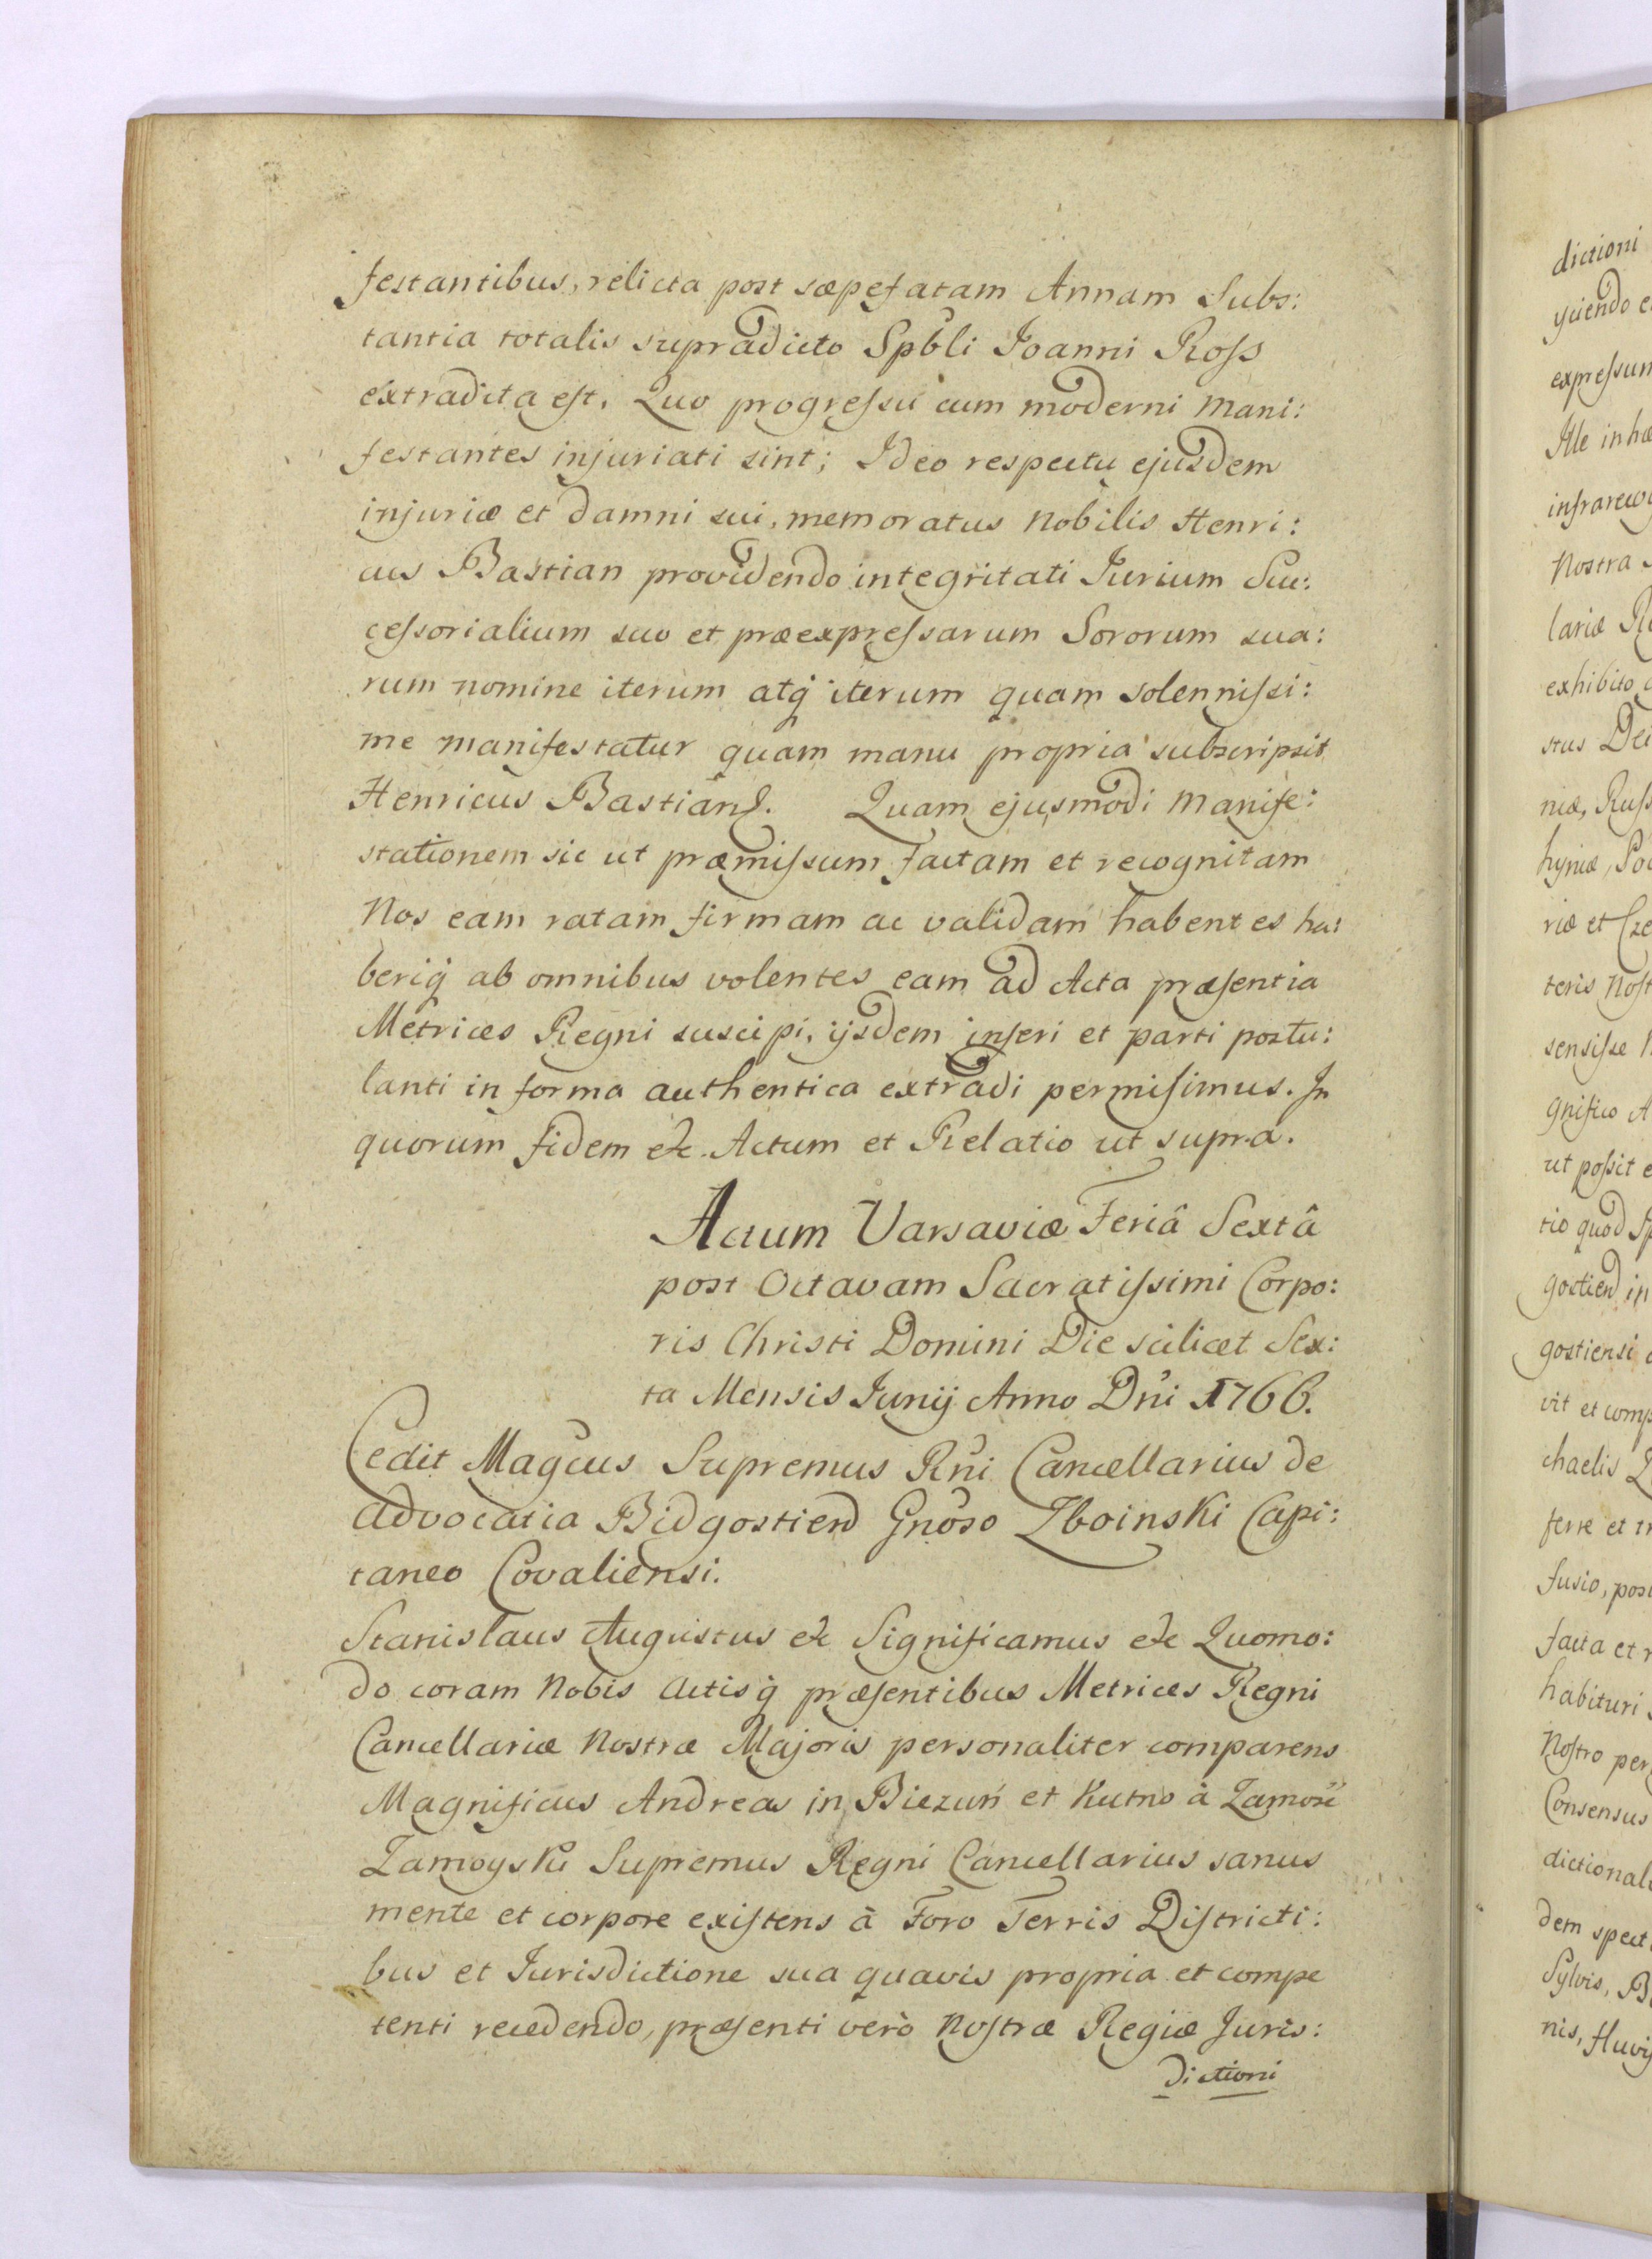 festantibus, relicta post sæpefatam Annam Subs:
tantia totalis supradicto Spbli Joanni Ross
extradita est. Quo progressu cum moderni Mani:
festantes injuriati sint; Ideo respectu ejusdem
injuriæ et damni sui, memoratus Nobilis Henri:
cus Bastian providendo integritati Jurium Suc:
cessorialium suo et præexpressarum Sororum sua:
rum nomine iterum atq iterum quam solennissi:
me manifestatur quam manu propria subscripsit
Henricus Bastian. Quam ejusmodi Manife:
stationem sic ut præmissum factam et recognitam
Nos eam ratam firmam ac validam habentes ha:
beriq ab omnibus volentes eam ad Acta præsentia
Metrices Regni suscipi, ijsdem inseri et parti postu:
lanti in forma authentica extradi permisimus. In
quorum fidem etc. Actum et Relatio ut supra.
Actum Varsaviæ Feriâ Sextâ
post Octavam Sacratissimi Corpo:
ris Christi Domini Die scilicet Sex:
ta Mensis Junij Anno Dni 1766.
Cedit Magcus Supremus Rni Cancellarius de
Advocatia Bidgostien Gnoso Zboinski Capi:
taneo Covaliensi.
Stanislaus Augustus etc Significamus etc Quomo:
do coram Nobis Actisq præsentibus Metrices Regni
Cancellariæ Nostræ Majoris personaliter comparens
Magnificus Andreas in Biezuń et Kutno à Zamość
Zamoyski Supremus Regni Cancellarius sanus
mente et corpore existens à Foro Terris Districti:
bus et Jurisdictione sua quavis propria et compe
tenti recedendo, præsenti verò Nostræ Regiæ Juris:
dictioni
dictioni
expressum
Ille
Nostra
lariæ
exhibito
niæ,
hyniæ,
riæ et
teris
sensisse
gnifico
ut possit
tio quod
gostien in
gostiensi
vit et
chaelis
ferre et
fusio,
facta et
habituri
Nostro
Consensus
dem
Sylvis,
nis,